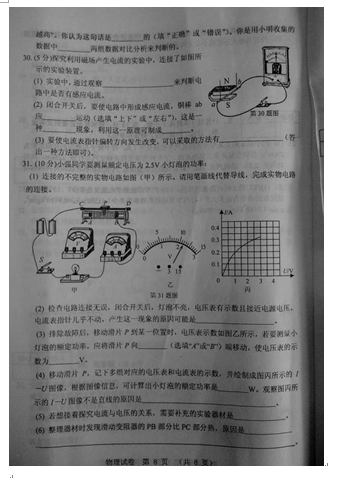 越高"。你认为这句话是______的（填"正确"或"错误"）。你是用小明收集的
数据中______两组数据对比分析来判断的。
30.(5分)探究利用磁场产生电流的实验中，连接了如图所
示的实验装置。
(1) 实验中，通过观察______来判断电
路中是否有感应电流。
(2) 闭合开关后，要使电路中形成感应电流，铜棒 ab
应______运动（选填"上下"或"左右"），这是一
种______现象。利用这一原理可制成______。
(3) 要使电流表指针偏转方向发生改变，可以采取的方法有______（答
出一种方法即可）。
N
a
S
第 30 题图
31.(10 分)小强同学要测量额定电压为 2.5V 小灯泡的功率：
(1) 连接的不完整的实物电路如图（甲）所示，请用笔画线代替导线，完成实物电路
的连接。
C P D
A B
S
甲
0 5 10 15
0 1 2 3
V
乙
第 31 题图
I/A
0.4
0.3
0.2
0.1
0 1 2 3 4 U/V
丙
(2) 检查电路连接无误，闭合开关后，灯泡不亮，电压表有示数且接近电源电压，
电流表指针几乎不动，产生这一现象的原因可能是______。
(3) 排除故障后，移动滑片 P 到某一位置时，电压表示数如图乙所示，若要测量小
灯泡的额定功率，应将滑片 P 向______（选填"A"或"B"）端移动，使电压表的示
数为______V。
(4) 移动滑片 P，记下多组对应的电压表和电流表的示数，并绘制成图丙所示的 I
—U 图像，根据图像信息，可计算出小灯泡的额定功率是______W。观察图丙所
示的 I—U 图像不是直线的原因是______。
(5) 若想接着探究电流与电压的关系，需要补充的实验器材是______。
(6) 整理器材时发现滑动变阻器的 PB 部分比 PC 部分热，原因是______
______。
物理试卷 第 8 页 （共 8 页）